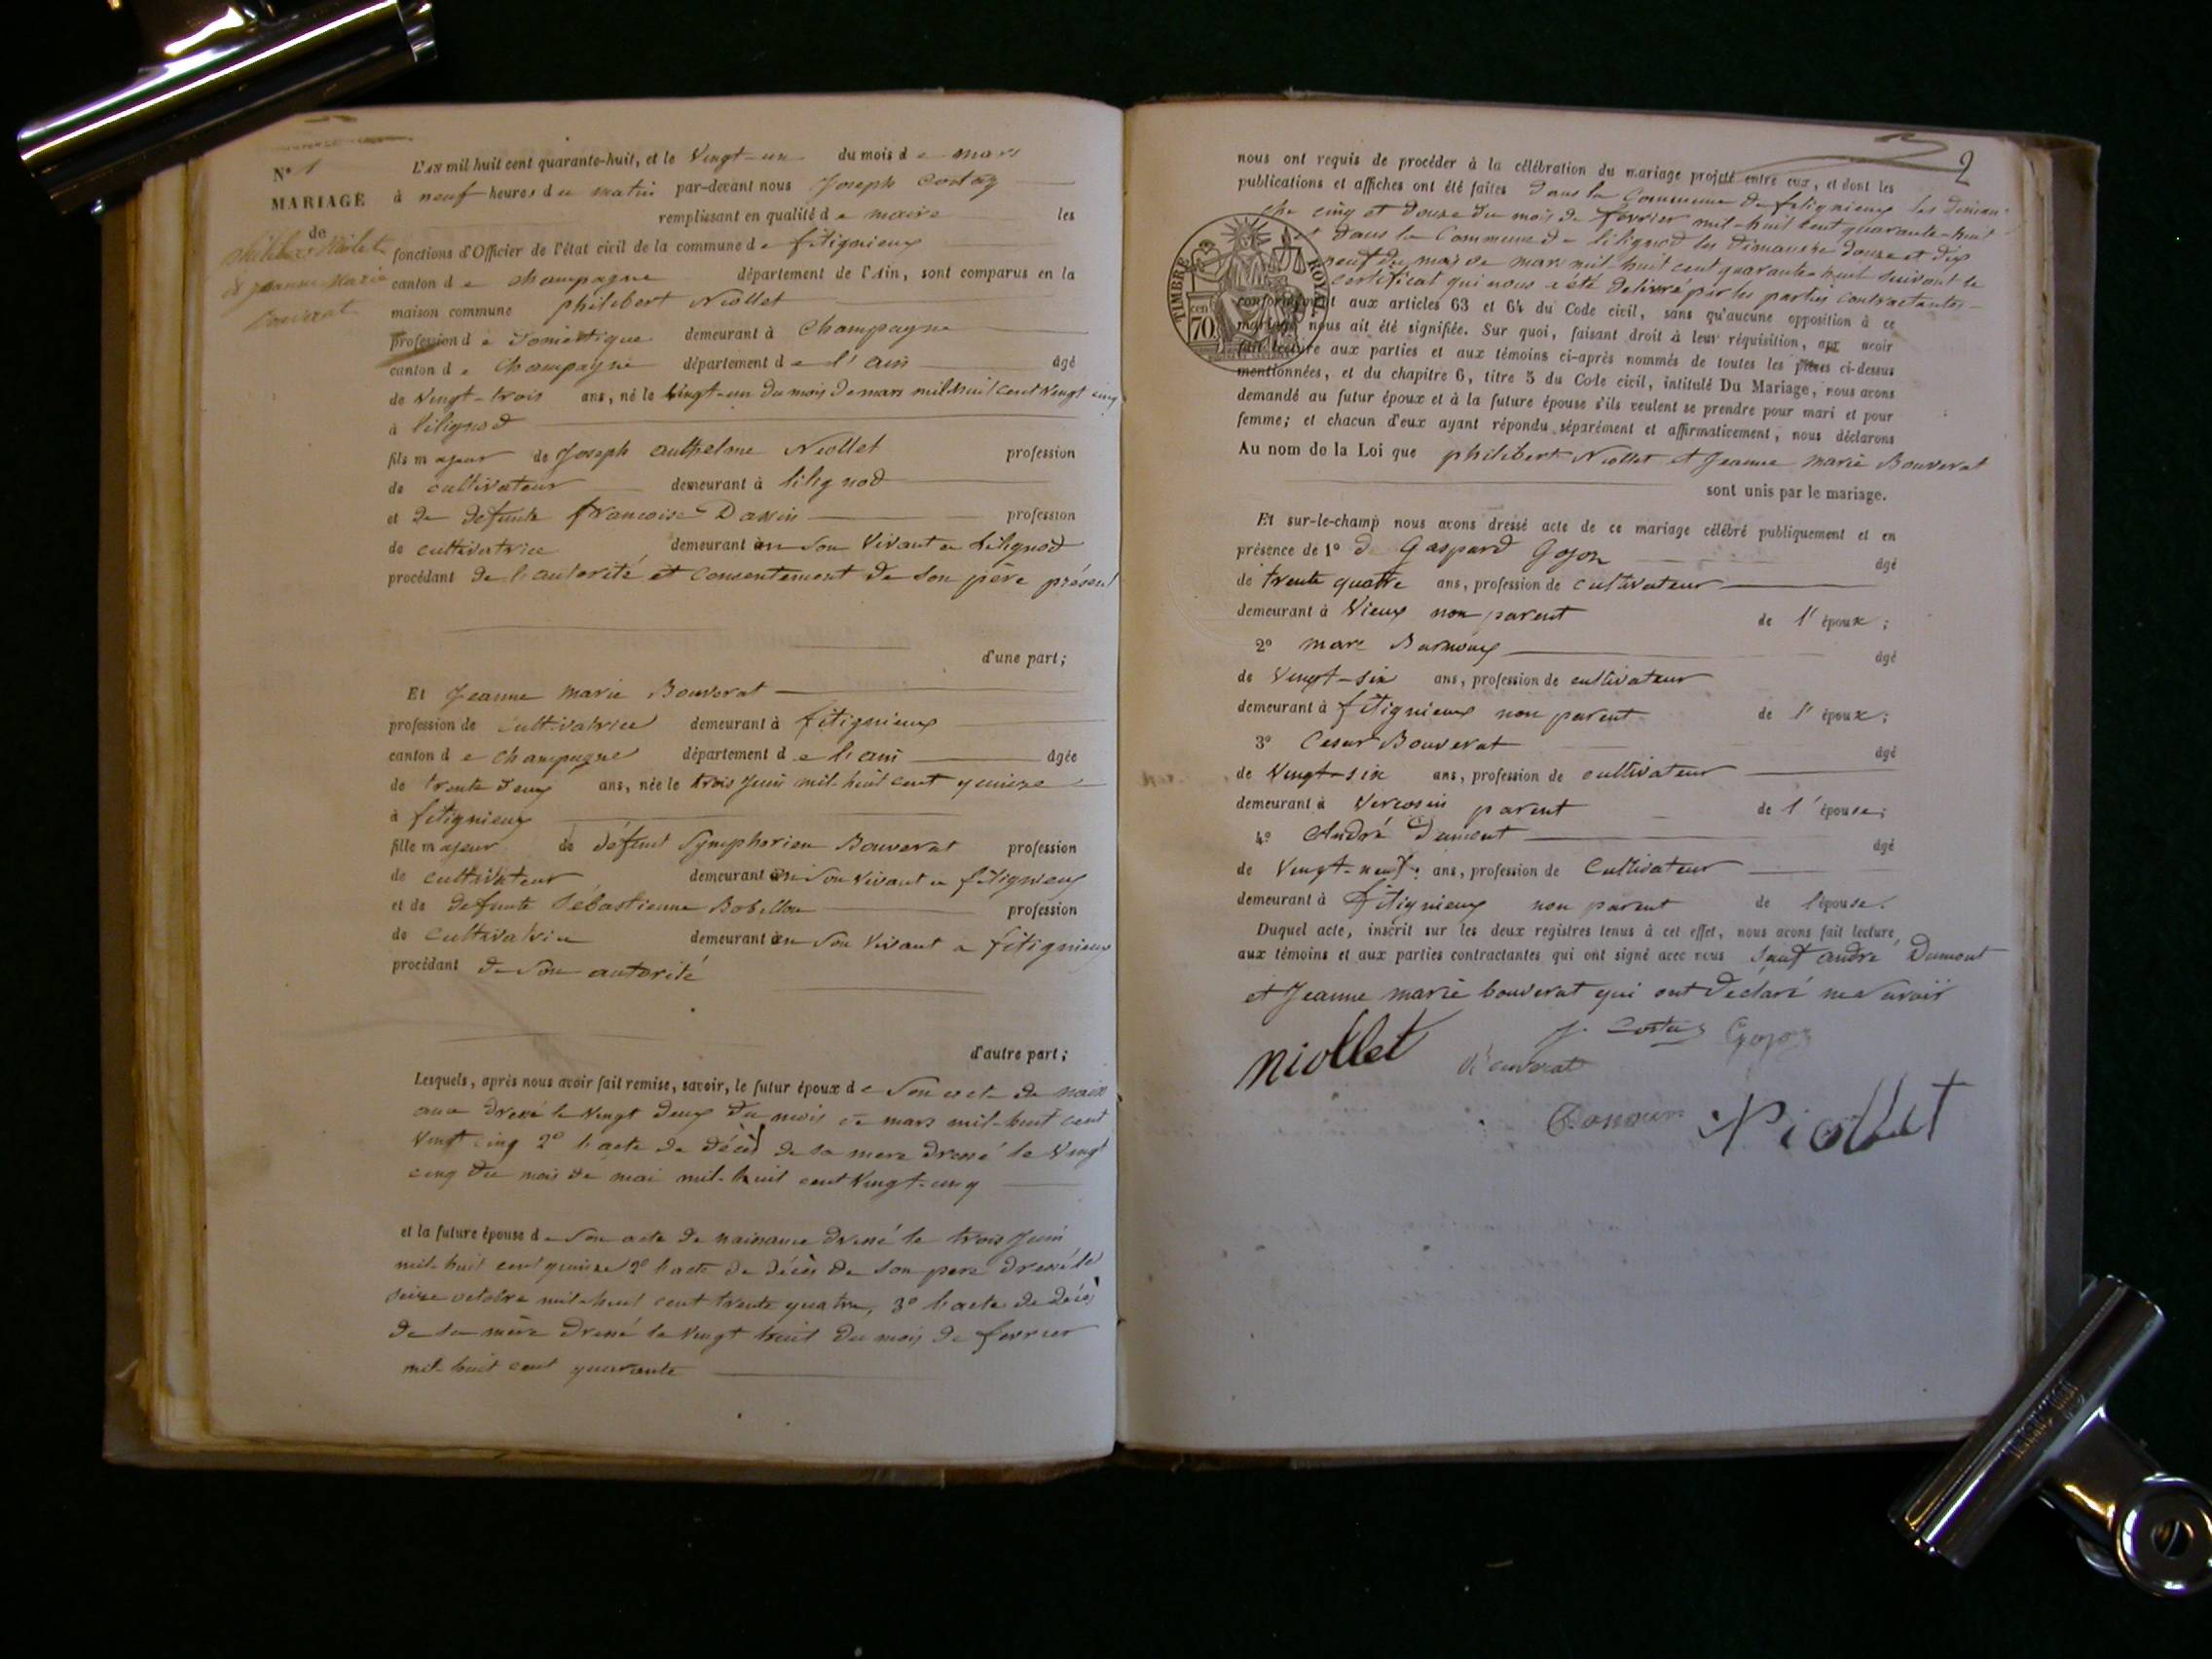 N° 1
MARIAGE
de
philibert Niollet
et Jeanne Marie
Bouverat
L'AN mil huit cent quarante-huit, et le Vingt-un du mois de mars
à neuf heures du matin par-devant nous Joseph Costaz
remplissant en qualité de maire les
fonctions d'Officier de l'état civil de la commune de fitignieux
canton de champagne département de l'Ain, sont comparus en la
maison commune philibert Niollet
profession de Domestique demeurant à Champagne
canton de Champagne département de l'ain âgé
de Vingt-trois ans, né le Vingt-un du mois de mars mil huit cent Vingt cinq
à lilignod
fils majeur de Joseph anthelme Niollet profession
de cultivateur demeurant à lilignod
et de defunte francoise profession
de cultivatrice demeurant en son Vivant a lilignod
procédant de l'autorité et consentement de son père présent
d'une part;
Et Jeanne marie Bouverat
profession de cultivatrice demeurant à fitignieux
canton de champagne département de l'ain âgée
de trente deux ans, née le trois Juin mil-huit cent quinze
à fitignieux
fille majeur de défunt Symphorien Bouverat profession
de cultivateur demeurant en son vivant a fitignieux
et de defunte Sébastienne Bobillon profession
de cultivatrice demeurant en son Vivant a fitignieux
procédant de son autorité
d'autre part;
Lesquels, après nous avoir fait remise, savoir, le futur époux de son acte de naiss
ance dressé le Vingt deux du mois de mars mil-huit cent
Vingt cinq 2° l'acte de décès de sa mere dressé le Vingt
cinq du mois de mai mil-huit cent Vingt-cinq
et la future épouse de son acte de naissance dressé le trois Juin
mil-huit cent quinze 2° l'acte de décès de son pere dressé le
seize octobre mil-huit cent trente quatre, 3° l'acte de décès
de sa mère dressé le Vingt huit du mois de fevrier
mil-huit cent quarante
2
nous ont requis de procéder à la célébration du mariage projeté entre eux, et dont les
publications et affiches ont été faites dans la Commune de fitignieux les diman
che cinq et douze du mois de fevrier mil-huit cent quarante-huit
et dans la Commune de lilignod les dimanche douze et dix
neuf du mois de mars mil-huit cent quarante huit suivant le
certificat qui nous a été delivré par les parties contractantes
TIMBRE ROYAL
cen 70
conformément aux articles 63 et 64 du Code civil, sans qu'aucune opposition à ce
mariage nous ait été signifiée. Sur quoi, faisant droit à leur réquisition, apr avoir
fait lecture aux parties et aux témoins ci-après nommés de toutes les pièces ci-dessus
mentionnées, et du chapitre 6, titre 5 du Code civil, intitulé Du Mariage, nous avons
demandé au futur époux et à la future épouse s'ils veulent se prendre pour mari et pour
femme; et chacun d'eux ayant répondu séparément et affirmativement, nous déclarons
Au nom de la Loi que philibert Niollet et Jeanne marie Bouverat
sont unis par le mariage.
Et sur-le-champ nous avons dressé acte de ce mariage célébré publiquement et en
présence de 1° de Gaspard Gojon âgé
de trente quatre ans, profession de cultivateur
demeurant à Vieux non parent de l'époux;
2° marc âgé
de Vingt-six ans, profession de cultivateur
demeurant à fitignieux non parent de l'époux;
3° Cesar Bouverat âgé
de Vingt-six ans, profession de cultivateur
demeurant à Vercosin parent de l'épouse;
4° André Dumont âgé
de Vingt-neuf ans, profession de Cultivateur
demeurant à fitignieux non parent de l'épouse.
Duquel acte, inscrit sur les deux registres tenus à cet effet, nous avons fait lecture
aux témoins et aux parties contractantes qui ont signé avec nous sauf andré Dumont
et Jeanne marie bouverat qui ont déclaré ne savoir
J. Costaz Gojon
niollet Bouverat
Niollet